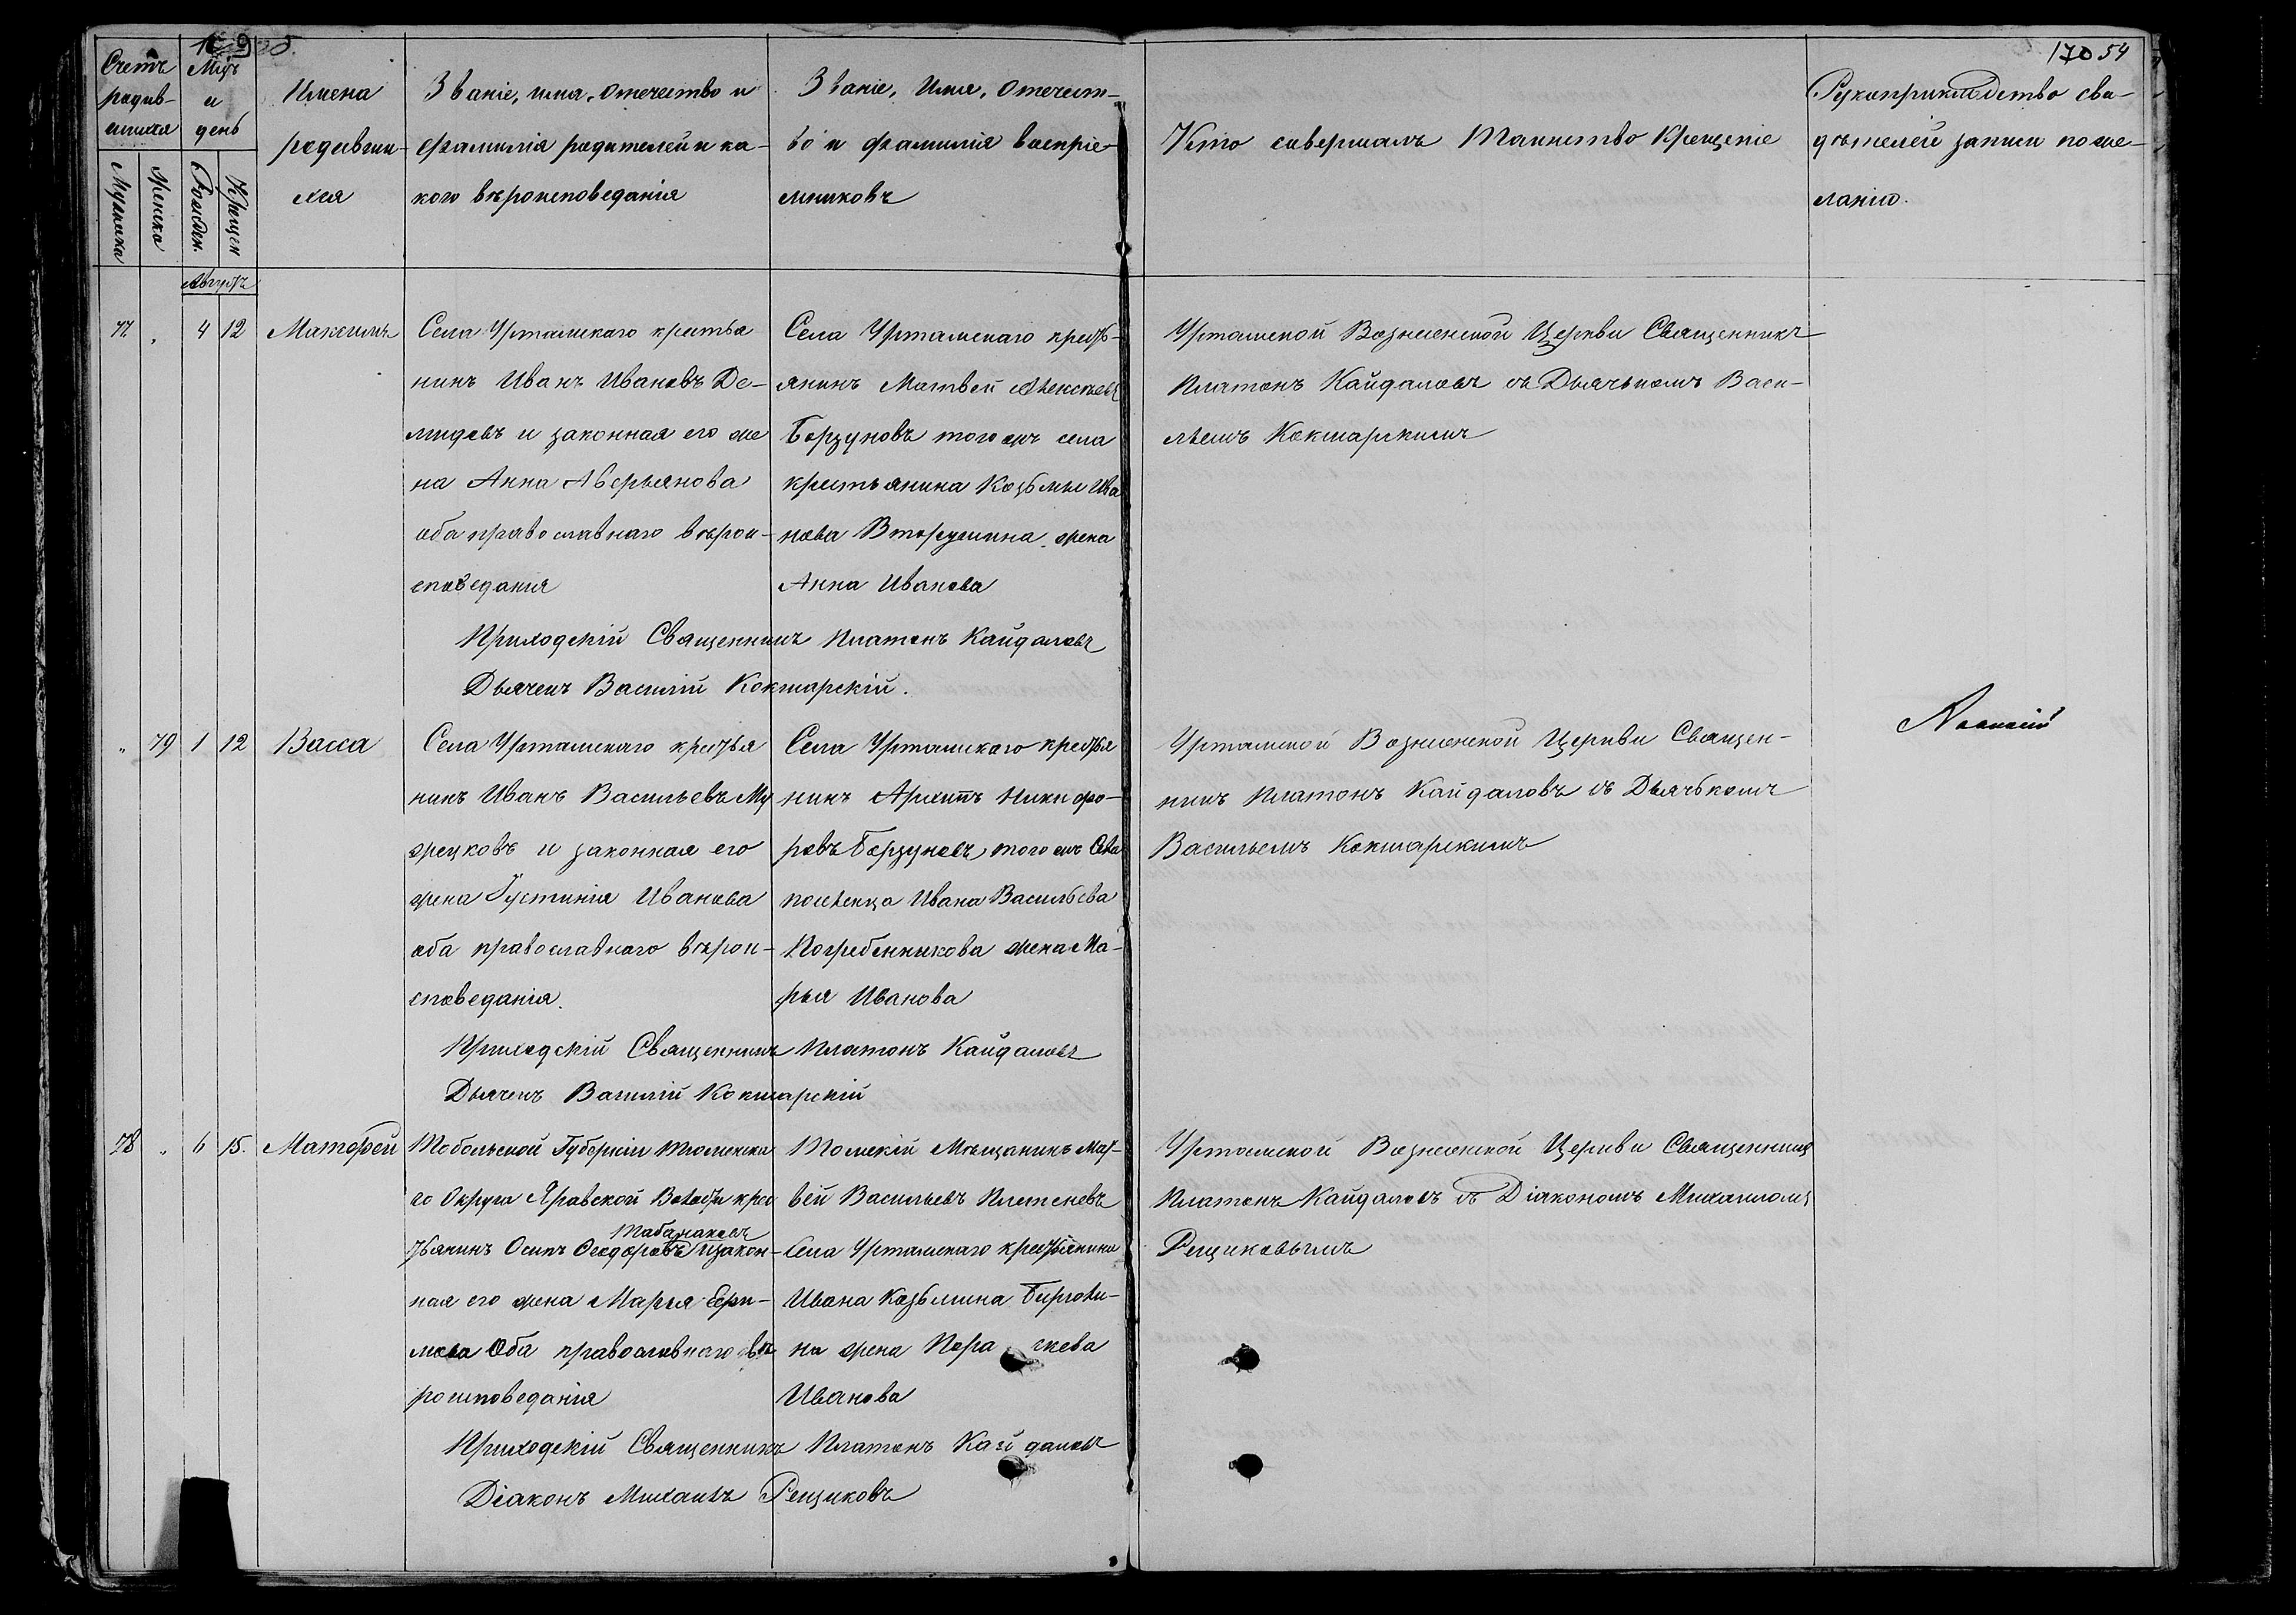 170 54
Счетъ родив-шихся
Мужска
Женска
Мцъ и день
Рожден.
Крещен
Имена родивши-хся
Званіе, имя, отечество и
фамилія родителей и ка-
кого вѣроисповеданія
Званіе, Имя, Отечест-
во и фамилія воспріе-
мниковъ
Кто совершалъ Таинство Крещеніе
Рукоприкладство сви-
дѣтелей записи по же-
ланію.
Августъ
77 „ 4 12 Максимъ
Села Уртамскаго крестья
нинъ Иванъ Ивановъ Де-
мидовъ и законная его же
на Анна Аверьянова
оба православнаго вѣрои-
споведания
Села Уртамскаго кресть-
янинъ Матвей Алексѣевъ
Борзуновъ того жъ села
крестьянина Козьмы Ива
нова Вторушина жена
Анна Иванова
Уртамской Вознесенской Церкви Священникъ
Платонъ Кайдаловъ съ Дьячькомъ Васи-
льемъ Кокшарскимъ
Приходскій Священникъ Платонъ Кайдаловъ
Дьячекъ Василій Кокшарскій.
„ 79 1 12 Васса
Села Уртамскаго крестья
нинъ Иванъ Васильевъ Му
жецковъ и законная его
жена Густинія Иванова
оба православнаго вѣрои-
споведанія.
Села Уртамскаго крестья
нинъ Архипъ Никифо-
ровъ Борзуновъ, того жъ Села
поселенца Ивана Васильева
Погребенникова жена Ма-
рья Иванова
Уртамской Вознесенской Церкви Священ-
никъ Платонъ Кайдаловъ съ Дьячькомъ
Васильемъ Кокшарскимъ
Приходскій Священникъ Платонъ Кайдаловъ
Дьячекъ Василій Кокшарскій
78 „ 6 15. Матфей
Тобольской Губерніи Тюменска
го Округа Яравской Волости крес
тьянинъ Осипъ Феодоровъ Табанаковъ и закон-
ная его жена Марья Ефи-
мова Оба православнаго вѣ
роисповеданія
Томскій Мѣщанинъ Мат-
вей Васильевъ Плетеневъ
Села Уртамскаго крестьянина
Ивана Козьмина Бирюли-
на жена Пора скева
Иванова
Уртамской Вознесенской Церкви Священникъ
Платонъ Кайдаловъ съ Діакономъ Михаиломъ
Рещиковымъ
Приходскій Священникъ Платонъ Кайдаловъ
Діаконъ Михаилъ Рещиковъ